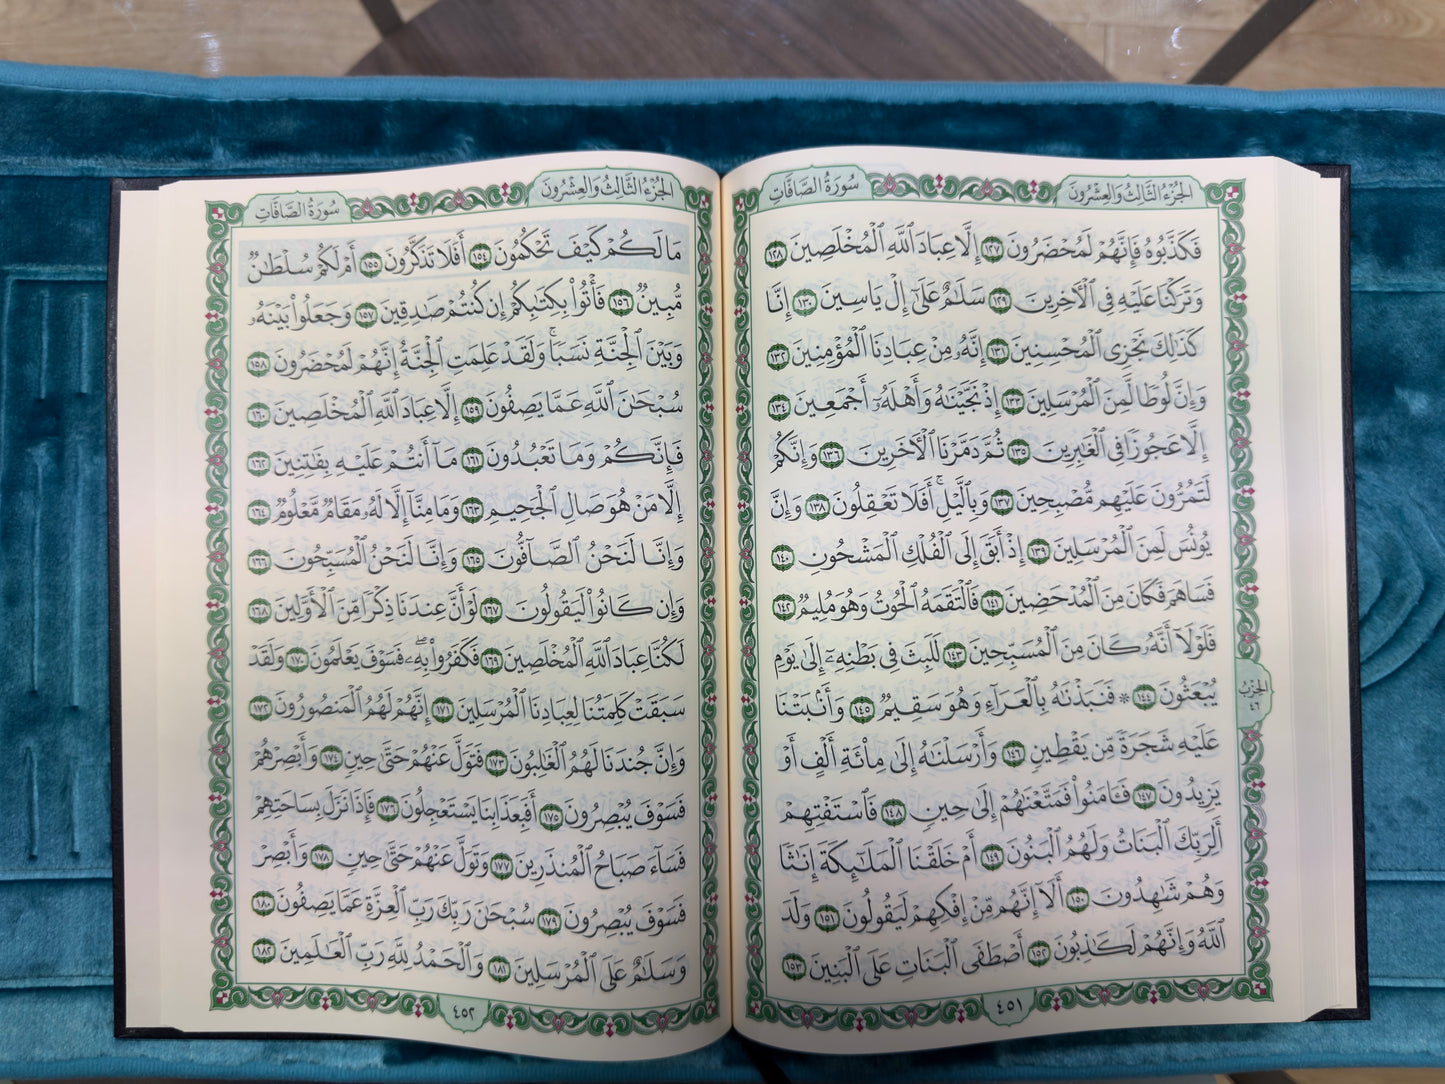 الجزء الثالث والعشرون
سورة الصافات
فَكَذَّبُوهُ فَإِنَّهُمْ لَمُحْضَرُونَ ١٢٧ إِلَّا عِبَادَ ٱللَّهِ ٱلْمُخْلَصِينَ ١٢٨
وَتَرَكْنَا عَلَيْهِ فِي ٱلْأَخِرِينَ ١٢٩ سَلَٰمٌ عَلَىٰٓ إِلْ يَاسِينَ ١٣٠ إِنَّا
كَذَٰلِكَ نَجْزِي ٱلْمُحْسِنِينَ ١٣١ إِنَّهُۥ مِنْ عِبَادِنَا ٱلْمُؤْمِنِينَ ١٣٢
وَإِنَّ لُوطًا لَّمِنَ ٱلْمُرْسَلِينَ ١٣٣ إِذْ نَجَّيْنَٰهُ وَأَهْلَهُۥٓ أَجْمَعِينَ ١٣٤
إِلَّا عَجُوزًا فِي ٱلْغَٰبِرِينَ ١٣٥ ثُمَّ دَمَّرْنَا ٱلْأَخَرِينَ ١٣٦ وَإِنَّكُمْ
لَتَمُرُّونَ عَلَيْهِم مُّصْبِحِينَ ١٣٧ وَبِٱلَّيْلِۚ أَفَلَا تَعْقِلُونَ ١٣٨ وَإِنَّ
يُونُسَ لَمِنَ ٱلْمُرْسَلِينَ ١٣٩ إِذْ أَبَقَ إِلَى ٱلْفُلْكِ ٱلْمَشْحُونِ ١٤٠
فَسَاهَمَ فَكَانَ مِنَ ٱلْمُدْحَضِينَ ١٤١ فَٱلْتَقَمَهُ ٱلْحُوتُ وَهُوَ مُلِيمٌ ١٤٢
فَلَوْلَآ أَنَّهُۥ كَانَ مِنَ ٱلْمُسَبِّحِينَ ١٤٣ لَلَبِثَ فِي بَطْنِهِۦٓ إِلَىٰ يَوْمِ
يُبْعَثُونَ ١٤٤ ۞ فَنَبَذْنَٰهُ بِٱلْعَرَآءِ وَهُوَ سَقِيمٌ ١٤٥ وَأَنۢبَتْنَا
عَلَيْهِ شَجَرَةً مِّن يَقْطِينٍ ١٤٦ وَأَرْسَلْنَٰهُ إِلَىٰ مِا۟ئَةِ أَلْفٍ أَوْ
يَزِيدُونَ ١٤٧ فَـَٔامَنُوا۟ فَمَتَّعْنَٰهُمْ إِلَىٰ حِينٍ ١٤٨ فَٱسْتَفْتِهِمْ
أَلِرَبِّكَ ٱلْبَنَاتُ وَلَهُمُ ٱلْبَنُونَ ١٤٩ أَمْ خَلَقْنَا ٱلْمَلَٰٓئِكَةَ إِنَٰثًا
وَهُمْ شَٰهِدُونَ ١٥٠ أَلَآ إِنَّهُم مِّنْ إِفْكِهِمْ لَيَقُولُونَ ١٥١ وَلَدَ
ٱللَّهُ وَإِنَّهُمْ لَكَٰذِبُونَ ١٥٢ أَصْطَفَى ٱلْبَنَاتِ عَلَى ٱلْبَنِينَ ١٥٣
الحزب
٤٦
٤٥١
الجزء الثالث والعشرون
سورة الصافات
مَا لَكُمْ كَيْفَ تَحْكُمُونَ ١٥٤ أَفَلَا تَذَكَّرُونَ ١٥٥ أَمْ لَكُمْ سُلْطَٰنٌ
مُّبِينٌ ١٥٦ فَأْتُوا۟ بِكِتَٰبِكُمْ إِن كُنتُمْ صَٰدِقِينَ ١٥٧ وَجَعَلُوا۟ بَيْنَهُۥ
وَبَيْنَ ٱلْجِنَّةِ نَسَبًاۚ وَلَقَدْ عَلِمَتِ ٱلْجِنَّةُ إِنَّهُمْ لَمُحْضَرُونَ ١٥٨
سُبْحَٰنَ ٱللَّهِ عَمَّا يَصِفُونَ ١٥٩ إِلَّا عِبَادَ ٱللَّهِ ٱلْمُخْلَصِينَ ١٦٠
فَإِنَّكُمْ وَمَا تَعْبُدُونَ ١٦١ مَآ أَنتُمْ عَلَيْهِ بِفَٰتِنِينَ ١٦٢
إِلَّا مَنْ هُوَ صَالِ ٱلْجَحِيمِ ١٦٣ وَمَا مِنَّآ إِلَّا لَهُۥ مَقَامٌ مَّعْلُومٌ ١٦٤
وَإِنَّا لَنَحْنُ ٱلصَّآفُّونَ ١٦٥ وَإِنَّا لَنَحْنُ ٱلْمُسَبِّحُونَ ١٦٦
وَإِن كَانُوا۟ لَيَقُولُونَ ١٦٧ لَوْ أَنَّ عِندَنَا ذِكْرًا مِّنَ ٱلْأَوَّلِينَ ١٦٨
لَكُنَّا عِبَادَ ٱللَّهِ ٱلْمُخْلَصِينَ ١٦٩ فَكَفَرُوا۟ بِهِۦۖ فَسَوْفَ يَعْلَمُونَ ١٧٠ وَلَقَدْ
سَبَقَتْ كَلِمَتُنَا لِعِبَادِنَا ٱلْمُرْسَلِينَ ١٧١ إِنَّهُمْ لَهُمُ ٱلْمَنصُورُونَ ١٧٢
وَإِنَّ جُندَنَا لَهُمُ ٱلْغَٰلِبُونَ ١٧٣ فَتَوَلَّ عَنْهُمْ حَتَّىٰ حِينٍ ١٧٤ وَأَبْصِرْهُمْ
فَسَوْفَ يُبْصِرُونَ ١٧٥ أَفَبِعَذَابِنَا يَسْتَعْجِلُونَ ١٧٦ فَإِذَا نَزَلَ بِسَاحَتِهِمْ
فَسَآءَ صَبَاحُ ٱلْمُنذَرِينَ ١٧٧ وَتَوَلَّ عَنْهُمْ حَتَّىٰ حِينٍ ١٧٨ وَأَبْصِرْ
فَسَوْفَ يُبْصِرُونَ ١٧٩ سُبْحَٰنَ رَبِّكَ رَبِّ ٱلْعِزَّةِ عَمَّا يَصِفُونَ ١٨٠
وَسَلَٰمٌ عَلَى ٱلْمُرْسَلِينَ ١٨١ وَٱلْحَمْدُ لِلَّهِ رَبِّ ٱلْعَٰلَمِينَ ١٨٢
٤٥٢